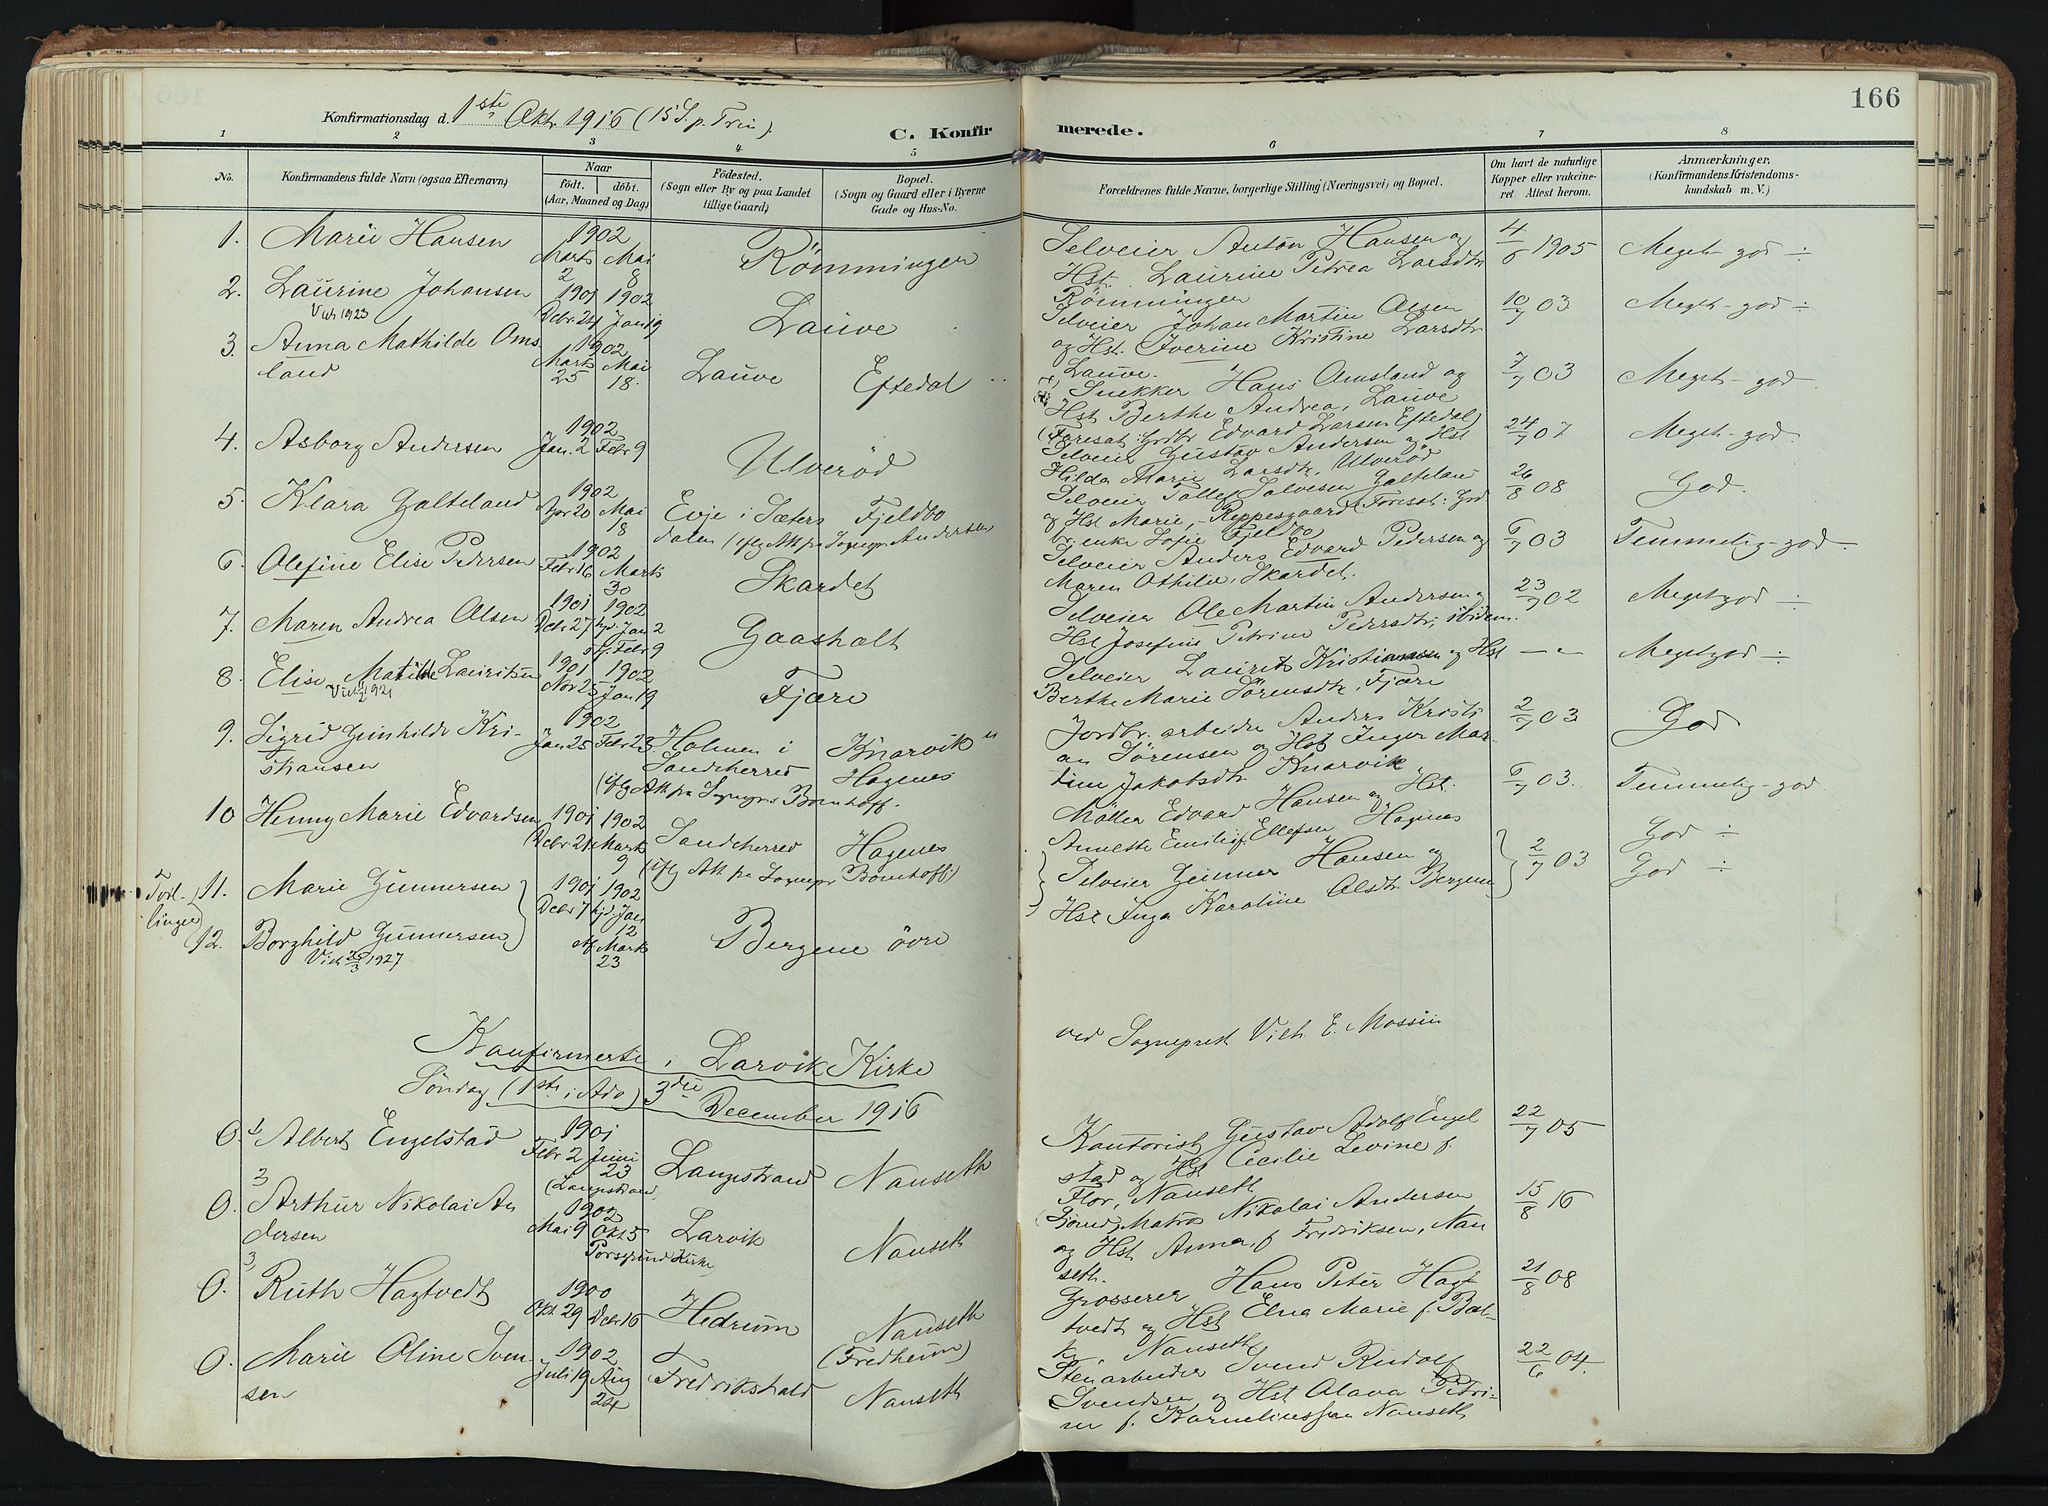 166
Konfirmationsdag d. 1ste Oktr. 1916 (15 S. p. Trin).
C. Konfirmerede.
1 2 3 4 5 6 7 8
No.
Konfirmandens fulde Navn (ogsaa Efternavn)
Naar
födt. döbt.
(Aar, Maaned og Dag)
Födested.
(Sogn eller By og paa Landet
tillige Gaard)
Bopæl.
(Sogn og Gaard eller i Byerne
Gade og Hus-No.
Forældrenes fulde Navne, borgerlige Stilling (Næringsvei) og Bopæl.
Om havt de naturlige
Kopper eller vakcine-
ret. Attest herom.
Anmærkninger.
(Konfirmandens Kristendoms-
kundskab m. V.)
1. Marie Hansen 1902 Marts 2 Mai 8 Römmingen
Selveier Anton Hansen og
Hst. Laurine Petrea Larsdtr
Römmingen
4/6 1905 Meget god ÷
2. Laurine Johansen 1901 1902 Decbr. 24 Jan 19 Lauve
Vich 1923
Selveier Johan Martin Olsen
og Hst. Iverine Kristine Larsdtr
Lauve.
10/7 03 Meget god ÷
3. Anna Mathilde Oms
land
1902 Marts 25 Mai 18. Lauve Eftedal
Snekker Hans Omsland og
Hst Berthe Andrea, Lauve
(Foresat: Grdbr Edvard Larsen Eftedal)
7/7 03 Meget god
4. Asborg Andersen 1902 Jan. 2 Febr 9 Ulveröd
Selveier Gustav Andersen og Hst
Hilda Marie Larsdtr, Ulveröd
24/7 07 Meget god.
5. Klara Galteland 1902 Apr 20 Mai 18
Evje i Sæters
dalen
Fjeldbo
(iflg Att fra Sognepr Andersen
Selveier Tallef Salvesen Galteland
og Hst Marie, Reppesgaard (Foresat: Grd
br. enke Sofie Fjeldbo)
26/8 08 God.
6. Olefine Elise Pedersen 1902 Febr 16 Marts 30 Skardet
Selveier Anders Edvard Pedersen og
Maren Othilie, Skardet.
6/7 03 Temmelig god
7. Maren Andrea Olsen 1901 1902 Decbr 27 hjd. Jan 2 Febr 9 Gaasholt
Selveier Ole Martin Andersen og
Hst Josefine Petrine Pedersdtr, ibidem.
23/7 02 Meget god ÷
8. Elise Matilde Lauritsen 1901 1902 Nov 25 Jan 19 Fjære
Vich 1921
Selveier Laurits Kristiansen og Hst
Berthe Marie Sörensdtr, Fjære
— " — Meget god ÷
9. Sigrid Gunhilde Kri-
stiansen
1902 Jan 25 Febr 23
Holmen i
Sandeherred
Knarvik
Hagenes
(iflg Att fra Sognepr Bomhoff.
Jordbr. arbeider Anders Kristi
an Sörensen og Hst Inger Mar-
tine Jakobsdtr Knarvik
2/7 03 God
10 Henny Marie Edvardsen 1901 1902 Decbr 21 Marts 9 Sandeherred Hagenes
(iflg Att fra Sognepr Bomhoff)
Möller Edvard Hansen og Hst.
Annette Emilie f Ellefsen Hagenes
6/7 03. Temmelig god
Tvil-
linger
11. Marie Gunnersen
12. Borghild Gunnersen
Vich 26/3 1927
1901 1902 Decbr 7 hjd. Jan 12 Marts 23
Bergene övre
Selveier Gunner Hansen og
Hst Inga Karoline Olsdtr Bergene
2/7 03
God ÷
God ÷
ved Sogneprest Vilh. E. Mossin
Konfirmerte i Larvik Kirke
Söndag (1ste i Adv) 3die December 1916
0. Albert Engelstad 1901 Febr 2 Juni 23 (Langestrand Langestrand Nanseth
Kontorist Gustav Adolf Engel
stad og Hst Cecilie Levine f.
Flor, Nanseth
22/7 05
0. Arthur Nikolai An
dersen
1902 Mai 9 Okt 5 Porsgrund Kirke Larvik Nanseth
Matros Nikolai Andersen
og Hst Anna, f Fredriksen, Nan
seth.
15/8 16
0. Ruth Hagtvedt 1900 Okt 29 Decbr 16 Hedrum Nanseth
(Fredheim)
Grosserer Hans Peter Hagt
vedt og Hst Elna Marie f. Bal-
ke Nanseth
21/8 08
0. Marie Oline Sven
sen
1902 Juli 19 Aug 24 Fredrikshald Nanseth
Stenarbeider Svend Rudolf
Svendsen og Hst Olava Petri-
ne f. Korneliussen Nanseth
22/6 04.